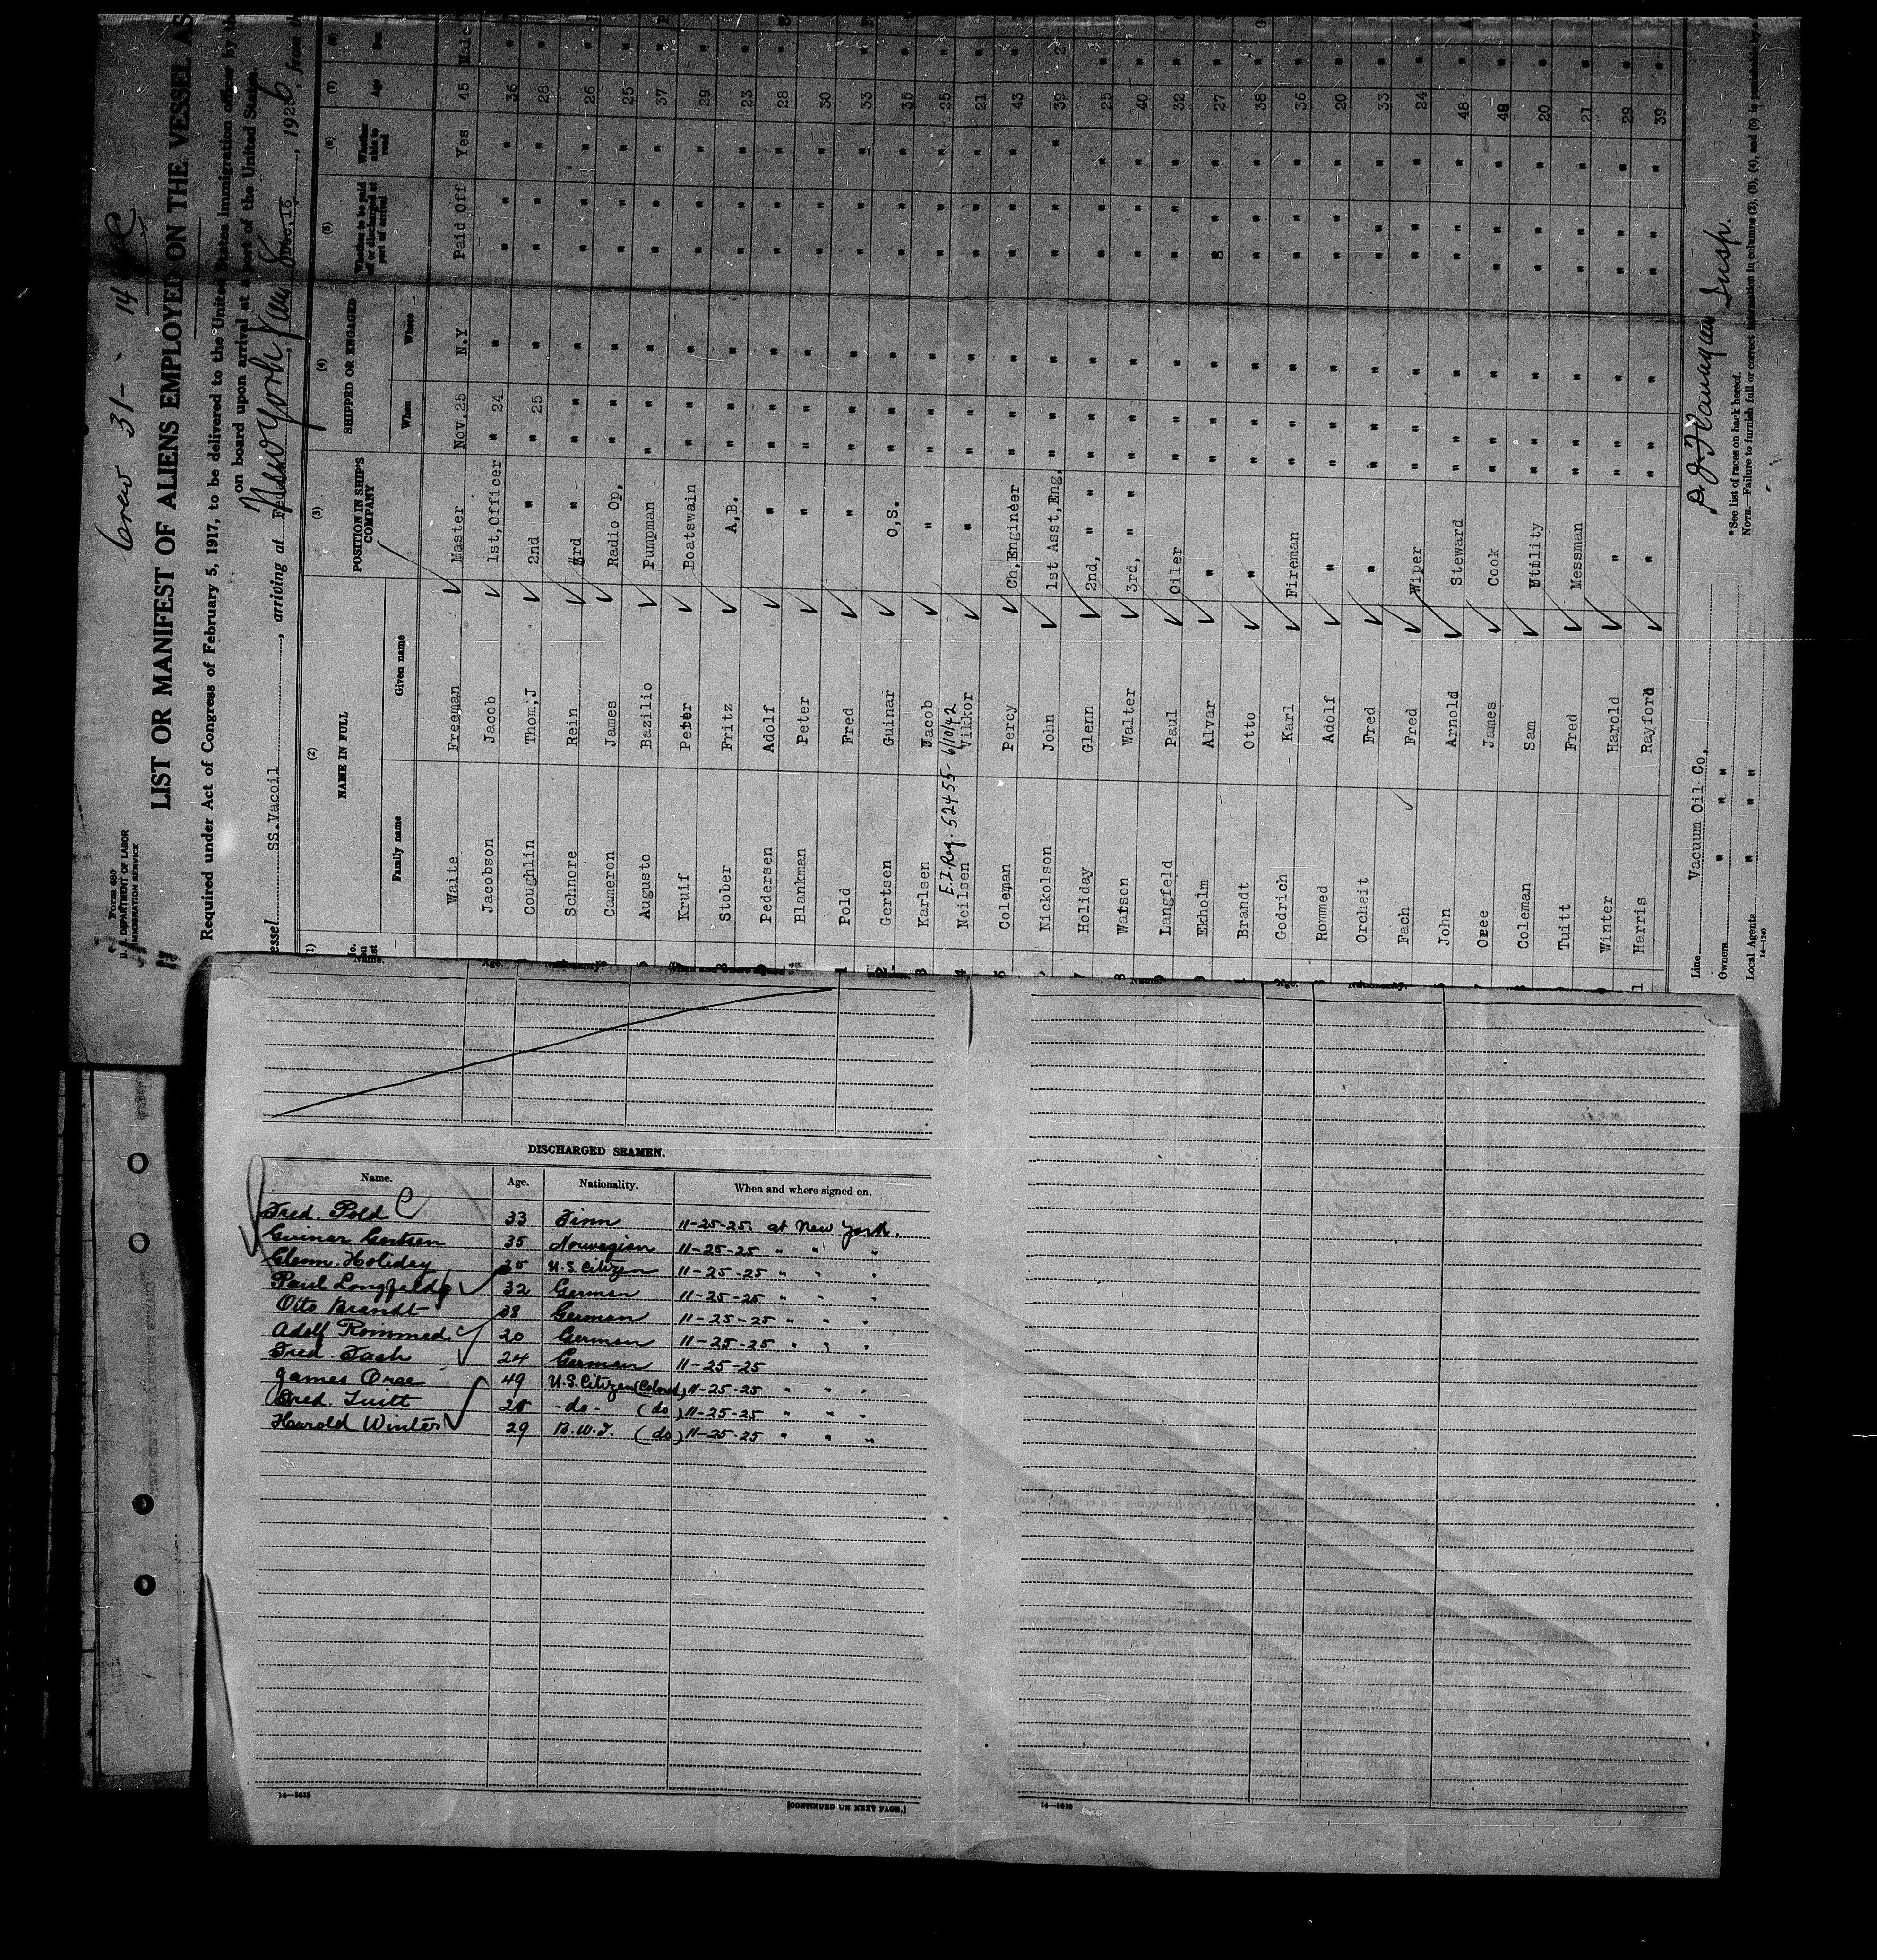 Crew 31 - 14
Form 680
U. S. DEPARTMENT OF LABOR
IMMIGRATION SERVICE
LIST OR MANIFEST OF ALIENS EMPLOYED ON THE VESSEL AS
Required under Act of Congress of February 5, 1917, to be delivered to the United States immigration officer by the
on board upon arrival at a port of the United States.
essel SS.Vacoil, arriving at New York, Jany 8, 1926, from
(1) (2) (3) (4) (5) (6) (7) (8)
NAME IN FULL POSITION IN SHIP'S COMPANY SHIPPED OR ENGAGED Whether to be paid off or discharged at port of arrival Whether able to read Age Sex
Family name Given name When Where
Waite Freeman Master Nov,25 N.Y Paid Off Yes 45 Male
Jacobson Jacob 1st,Officer " 24 " " " " 36 "
Coughlin Thom;J 2nd " " 25 " " " " 28 "
Schnore Rein 3rd " " " " " " " 26 "
Cameron James Radio Op, " " " " " " 25 "
Augusto Bazilio Pumpman " " " " " " 37 "
Kruif Peter Boatswain " " " " " " 29 "
Stober Fritz A,B. " " " " " " 23 "
Pedersen Adolf " " " " " " " 28 "
Blankman Peter " " " " " " " 30 "
Pold Fred " " " " " " " 33 "
Gertsen Guinar O,S. " " " " " " 35 "
Karlsen Jacob " " " " " " " 25 "
E.I.Reg. 52455 6/10/42
Neilsen Vikkor " " " " " " " 21 "
Coleman Percy Ch,Engineer " " " " " " 43 "
Nickolson John 1st Asst,Eng, " " " " " " 39 "
Holiday Glenn 2nd, " " " " " " " " 25 "
Watson Walter 3rd, " " " " " " " " 40 "
Langfeld Paul Oiler " " " " " " 32 "
Ekholm Alvar " " " " " " " 27 "
Brandt Otto " " " " " " " 38 "
Godrich Karl Fireman " " " " " " 36 "
Rommed Adolf " " " " " " " 20 "
Orcheit Fred " " " " " " " 33 "
Fach Fred Wiper " " " " " " 24 "
John Arnold Steward " " " " " " 48 "
Oree James Cook " " " " " " 49 "
Coleman Sam Utility " " " " " " 20 "
Tuitt Fred Messman " " " " " " 21 "
Winter Harold " " " " " " " 29 "
Harris Rayford " " " " " " " 39 "
Line Vacuum Oil Co,
Owners " " "
Local Agents " " "
14—1240
Insp.
*See list of races on back hereof.
NOTE.—Failure to furnish full or correct information in columns (2), (3), (4), and (5) is punishable by a
DISCHARGED SEAMEN.
Name. Age. Nationality. When and where signed on.
Fred. Pold 33 Finn 11-25-25. at New York.
Guinar Gertsen 35 Norwegian 11-25-25 " " "
Glenn. Holiday 25 U.S. Citizen 11-25-25 " " "
Paul Longfeld 32 German 11-25-25 " " "
Otto Brandt 38 German 11-25-25 " " "
Adolf Rommed 20 German 11-25-25 " " "
Fred. Fach 24 German 11-25-25
James Oree 49 U.S. Citizen (Colored) 11-25-25 " " "
Fred. Tuitt 21 -do- (do) 11-25-25 " " "
Harold Winter 29 B.W.I. (do) 11-25-25 " " "
14—1513
[CONTINUED ON NEXT PAGE.]
14—1513